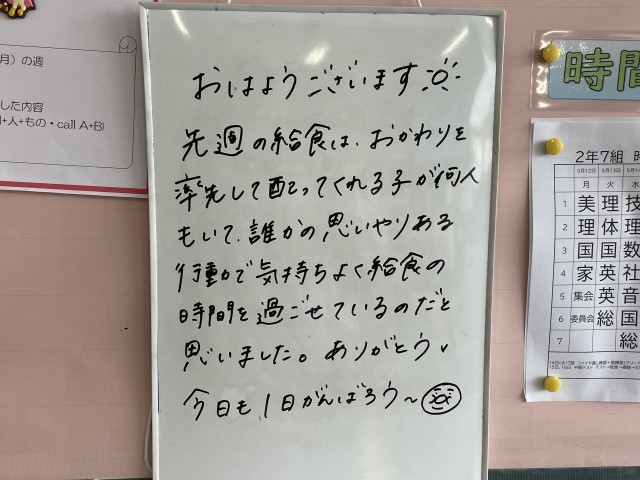 おはようございます
先週の給食は、おかわりを
率先して配ってくれる子が何人
もいて、誰かの思いやりある
行動で気持ちよく給食の
時間を過ごせているのだと
思いました。ありがとう
今日も1日がんばろう〜
月）の週
した内容
+人+もの・call A+B)
時間
2年7組 時
5月12日 5月13日 5月14
月 火 水
1 美 理 技
2 理 体 理
3 国 国 数
4 家 英 社
5 集会 英 音
6 委員会 総 国
7 総